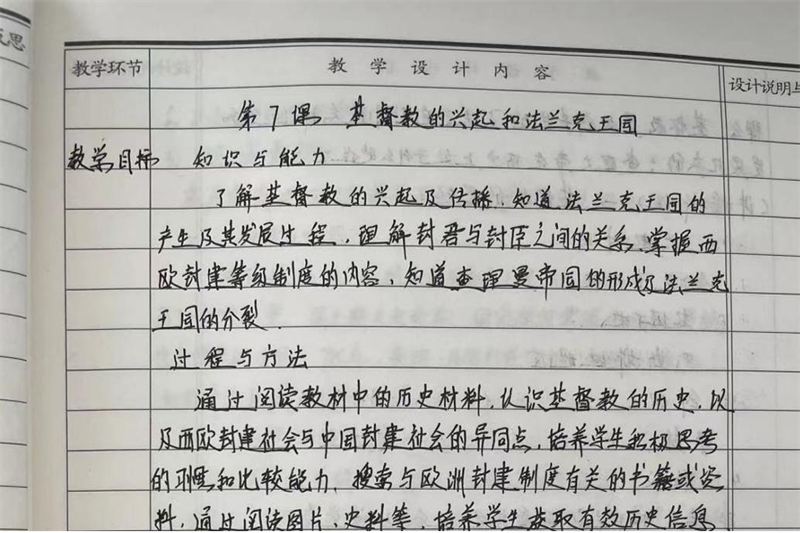 思
教学环节 教学设计内容 设计说明与
第7课 基督教的兴起和法兰克王国
教学目标 知识与能力
了解基督教的兴起及传播,知道法兰克王国的
产生及其发展过程,理解封君与封臣之间的关系,掌握西
欧封建等级制度的内容,知道查理曼帝国的形成及法兰克
王国的分裂.
过程与方法
通过阅读教材中的历史材料,认识基督教的历史,以
及西欧封建社会与中国封建社会的异同点,培养学生积极思考
的习惯和比较能力,搜索与欧洲封建制度有关的书籍或资
料,通过阅读图片、史料等,培养学生获取有效历史信息